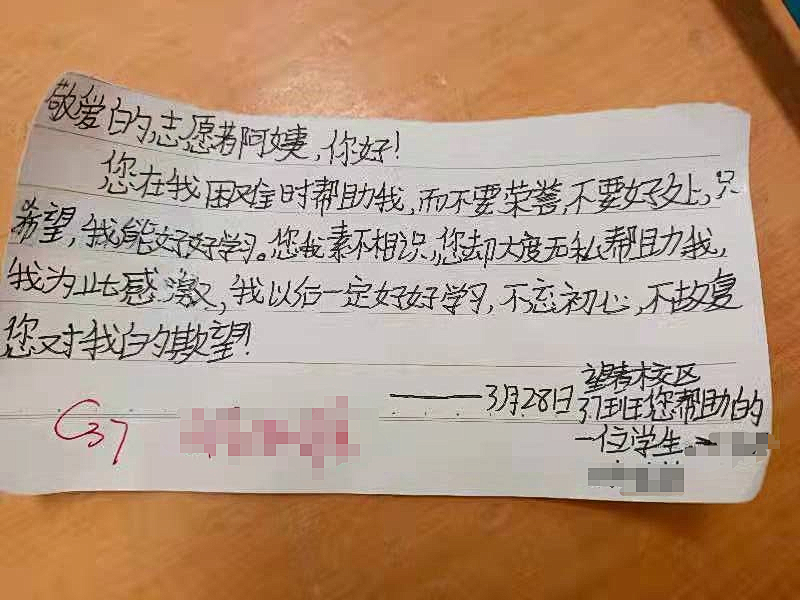 敬爱的志愿者阿姨,你好!
您在我困难时帮助我,而不要荣誉,不要好处,只
希望,我能好好学习。您我素不相识,您却大度无私帮助我,
我为此感激,我以后一定好好学习,不忘初心,不故复
您对我的期望!
——3月28日
望春校区
37班您帮助的
一位学生
37